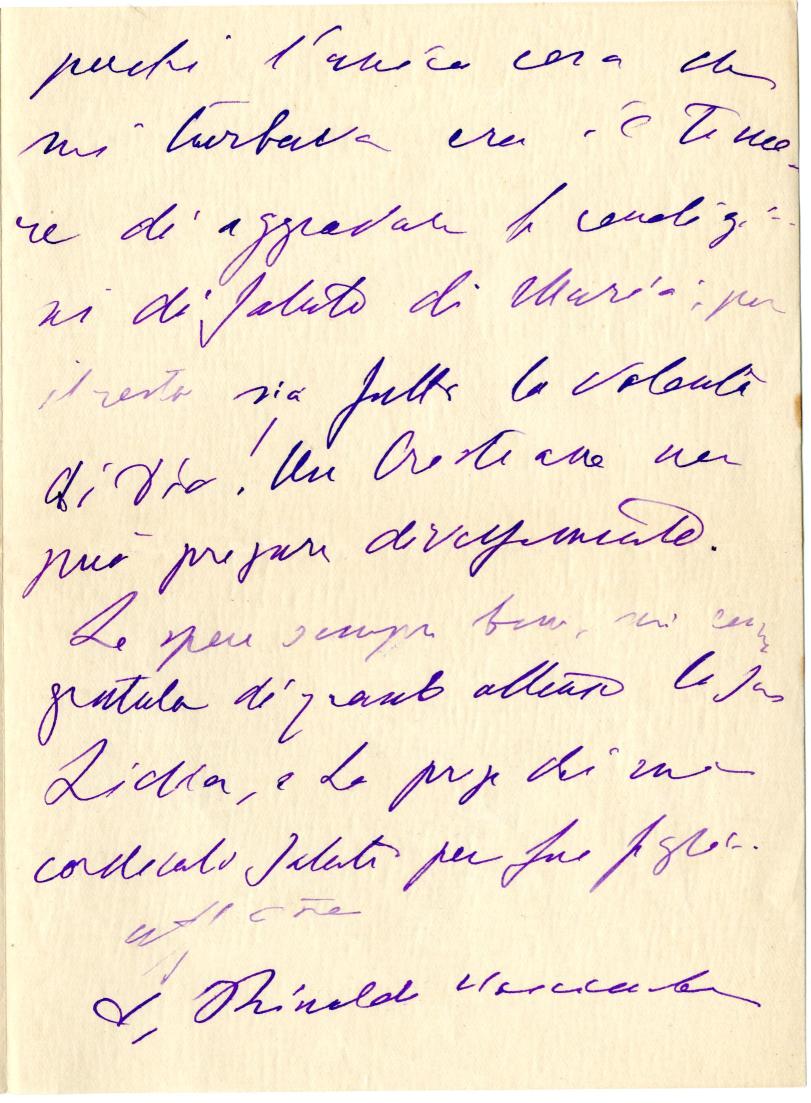 perché l'unica cosa che
mi turbava era il timo-
re di aggravare le condizio-
ni di salute di Maria; per
il resto sia fatta la volontà
di Dio! Un Cristiano non
può pregare diversamente.
La spero sempre bene, mi con-
gratulo di quanto ottenuto la sua
Lidia, e La prego di un
cordiale saluto per sua figlia.
+ Rinaldo